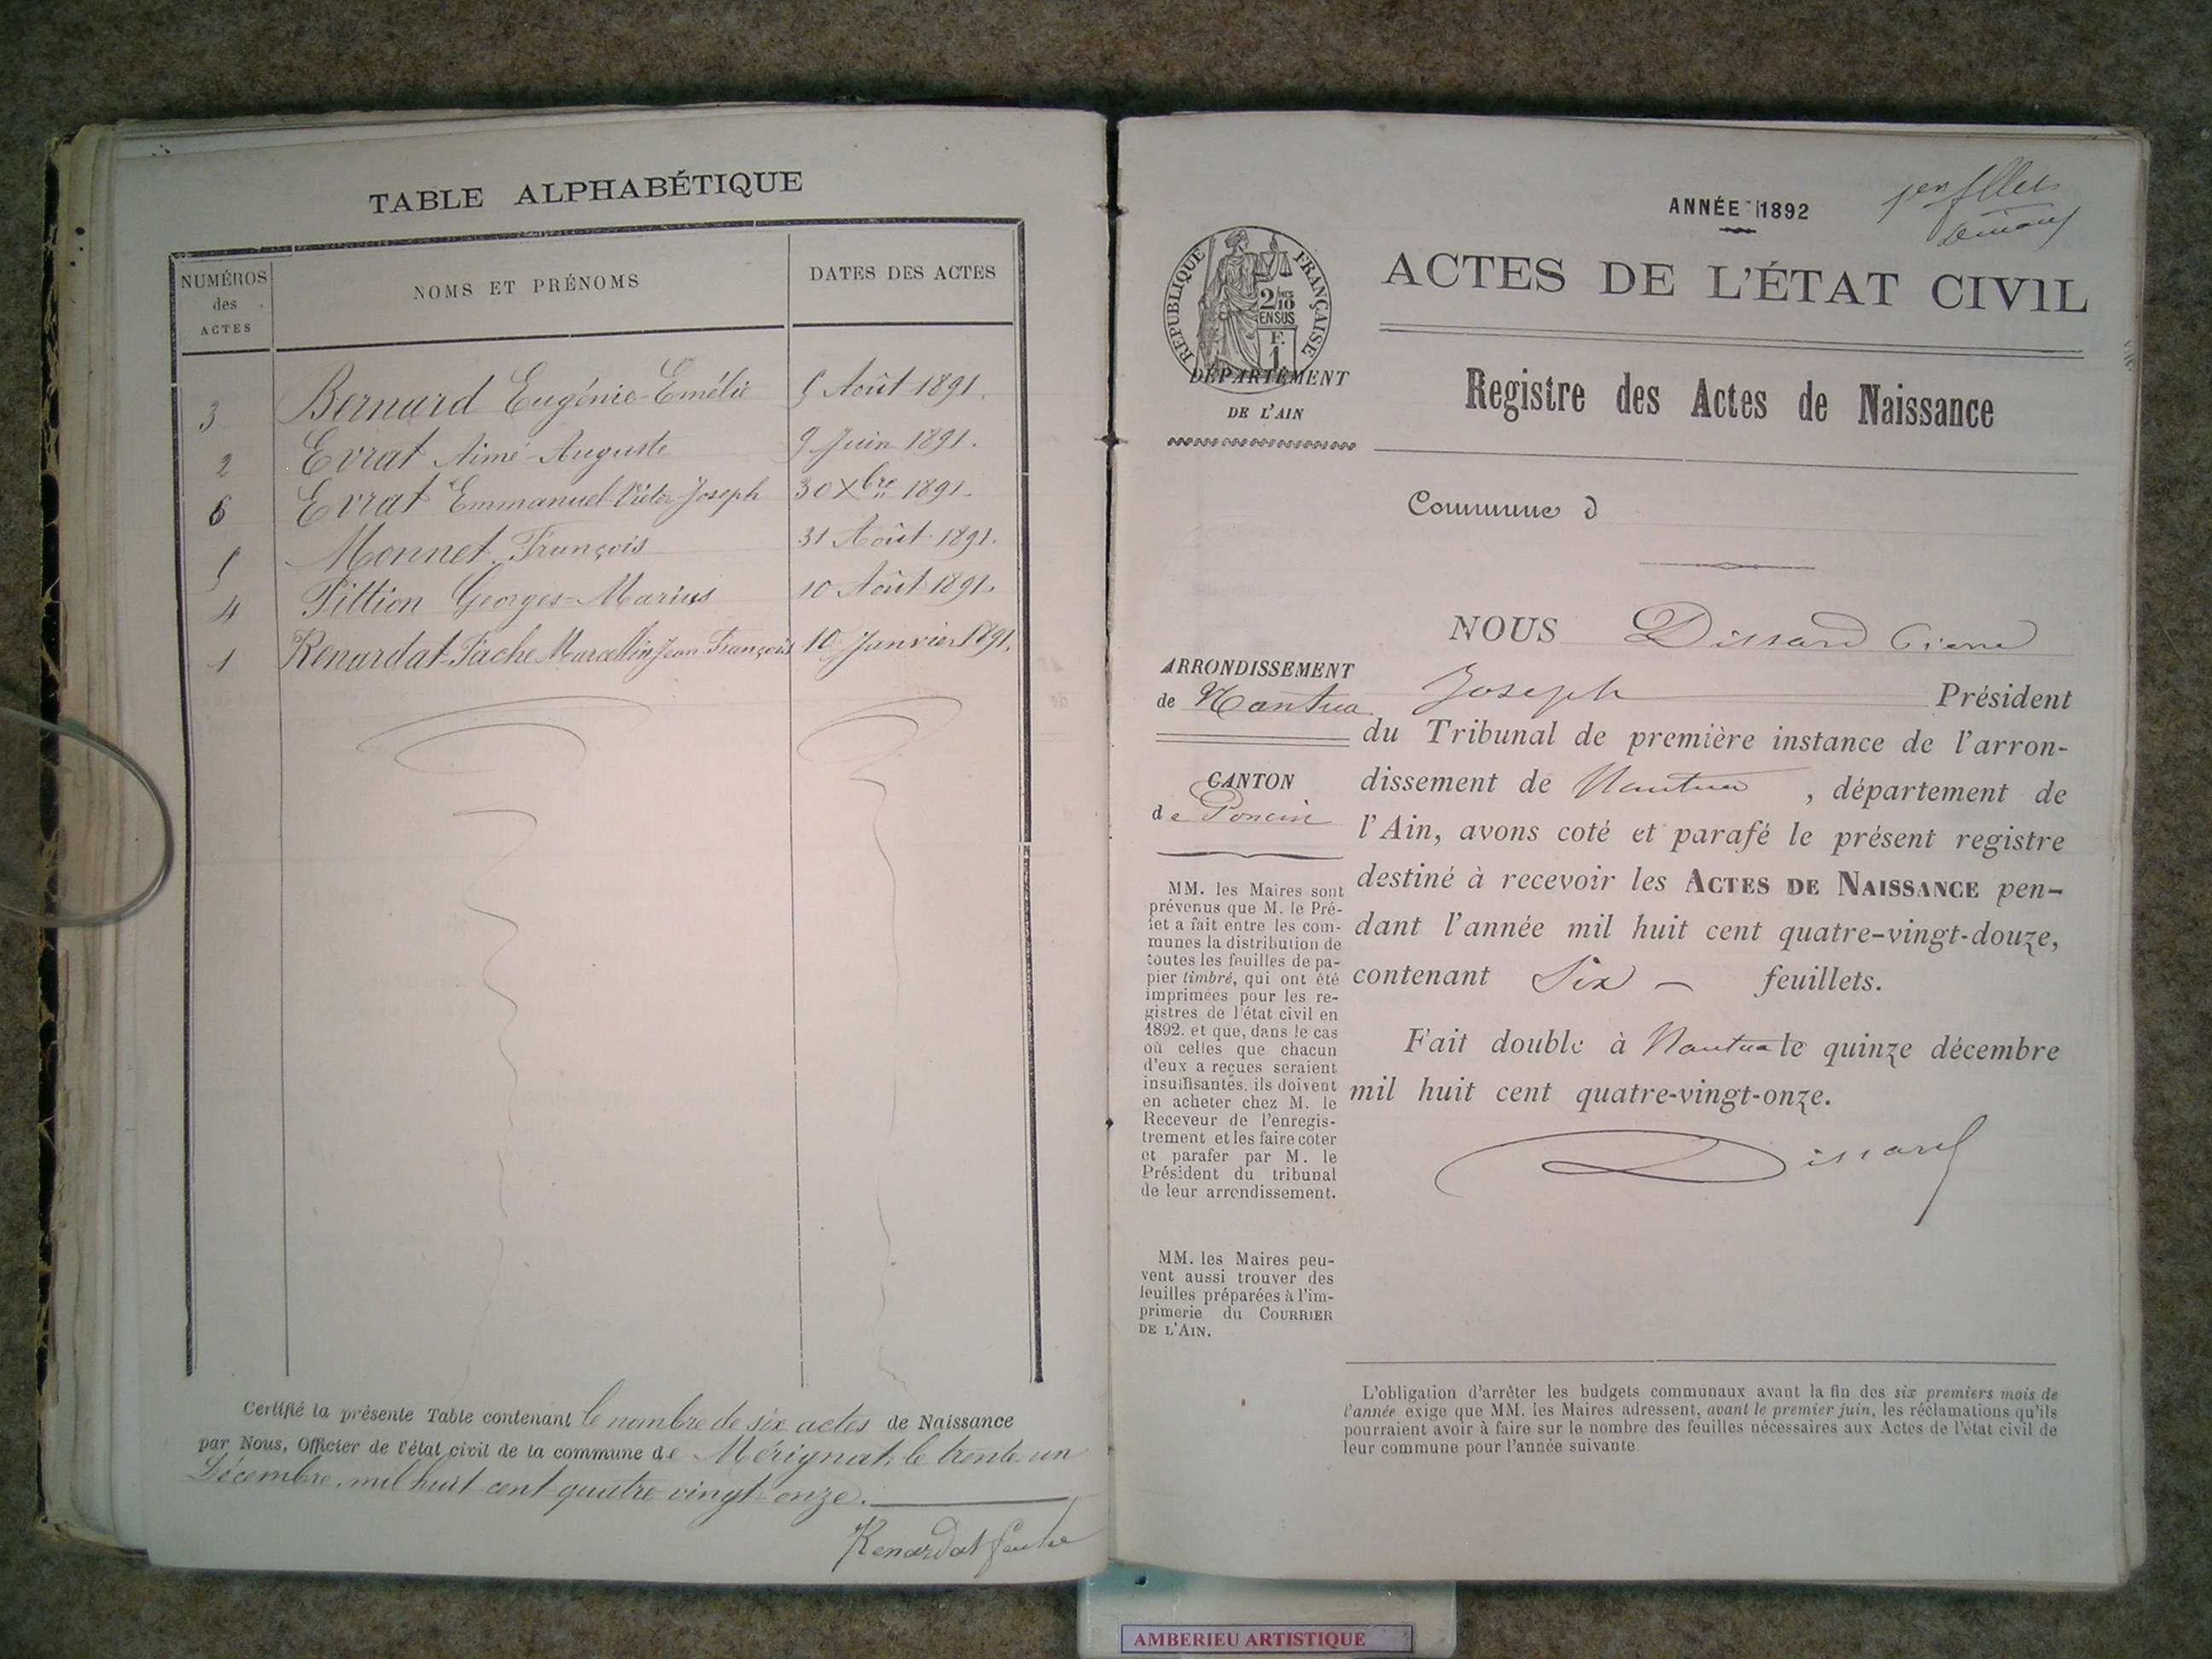 TABLE ALPHABÉTIQUE
NUMÉROS
des
ACTES
NOMS ET PRÉNOMS
DATES DES ACTES
3 Bernard Eugénie-Emélie 5 Août 1891.
2 Evrat Aimé-Auguste 9 Juin 1891.
6 Evrat Emmanuel-Victor-Joseph 30 Xbre 1891.
5 Monnet François 31 Août 1891.
4 Pittion Georges-Marius 10 Août 1891.
1 Renardat-Fache Marcellin Jean François 10 Janvier 1891.
Certifié la présente Table contenant le nombre de six actes de Naissance
par Nous, Officier de l'état civil de la commune de Mérignat, le trente un
Décembre, mil huit cent quatre vingt onze.
Renardat fache
ANNÉE 1892
RÉPUBLIQUE FRANÇAISE
2/10
EN SUS
F.
1
ACTES DE L'ÉTAT CIVIL
DÉPARTEMENT
DE L'AIN
Registre des Actes de Naissance
Commune d
NOUS Dissard Pierre
ARRONDISSEMENT
de Nantua
Joseph Président
du Tribunal de première instance de l'arron-
dissement de Nantua, département de
CANTON
de Poncin
l'Ain, avons coté et parafé le présent registre
destiné à recevoir les ACTES DE NAISSANCE pen-
dant l'année mil huit cent quatre-vingt-douze,
contenant Six feuillets.
Fait double à Nantua le quinze décembre
mil huit cent quatre-vingt-onze.
Dissard
MM. les Maires sont
prévenus que M. le Pré-
fet a fait entre les com-
munes la distribution de
toutes les feuilles de pa-
pier timbré, qui ont été
imprimées pour les re-
gistres de l'état civil en
1892. et que, dans le cas
où celles que chacun
d'eux a reçues seraient
insuffisantes, ils doivent
en acheter chez M. le
Receveur de l'enregis-
trement et les faire coter
et parafer par M. le
Président du tribunal
de leur arrondissement.
MM. les Maires peu-
vent aussi trouver des
feuilles préparées à l'im-
primerie du COURRIER
DE L'AIN.
L'obligation d'arrêter les budgets communaux avant la fin des six premiers mois de
l'année exige que MM. les Maires adressent, avant le premier juin, les réclamations qu'ils
pourraient avoir à faire sur le nombre des feuilles nécessaires aux Actes de l'état civil de
leur commune pour l'année suivante
AMBERIEU ARTISTIQUE